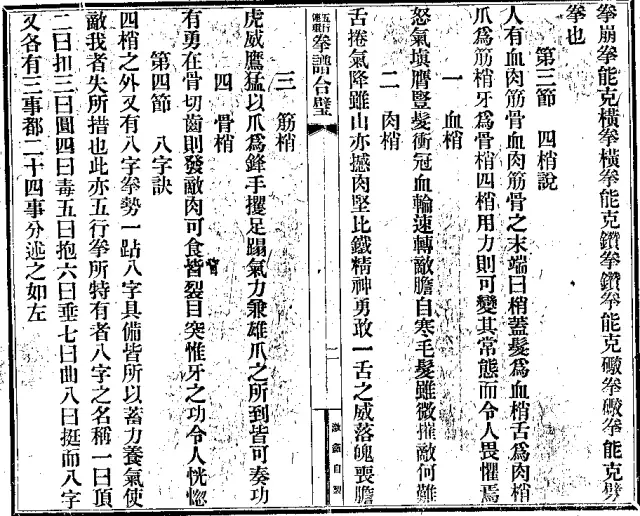 拳崩拳能克橫拳橫拳能克鑽拳鑽拳能克礮拳礮拳能克劈
拳也
第三節 四梢說
人有血肉筋骨血肉筋骨之末端曰梢蓋髮爲血梢舌爲肉梢
爪爲筋梢牙爲骨梢四梢用力則可變其常態而令人畏懼焉
一 血梢
怒氣塡膺豎髮衝冠血輪速轉敵膽自寒毛髮雖微摧敵何難
二 肉梢
舌捲氣降雖山亦撼肉堅比鐵精神勇敢一舌之威落魄喪膽
五行連環拳譜合璧
一
潋蘊自製
三 筋梢
虎威鷹猛以爪爲鋒手攫足蹋氣力兼雄爪之所到皆可奏功
四 骨梢
有勇在骨切齒則發敵肉可食眥裂目突惟牙之功令人恍惚
眥
第四節 八字訣
四梢之外又有八字拳勢一跕八字具備皆所以蓄力養氣使
敵我者失所措也此亦五行拳所特有者八字之名稱一曰頂
二曰扣三曰圓四曰毒五曰抱六曰垂七曰曲八曰挺而八字
又各有三事都二十四事分述之如左